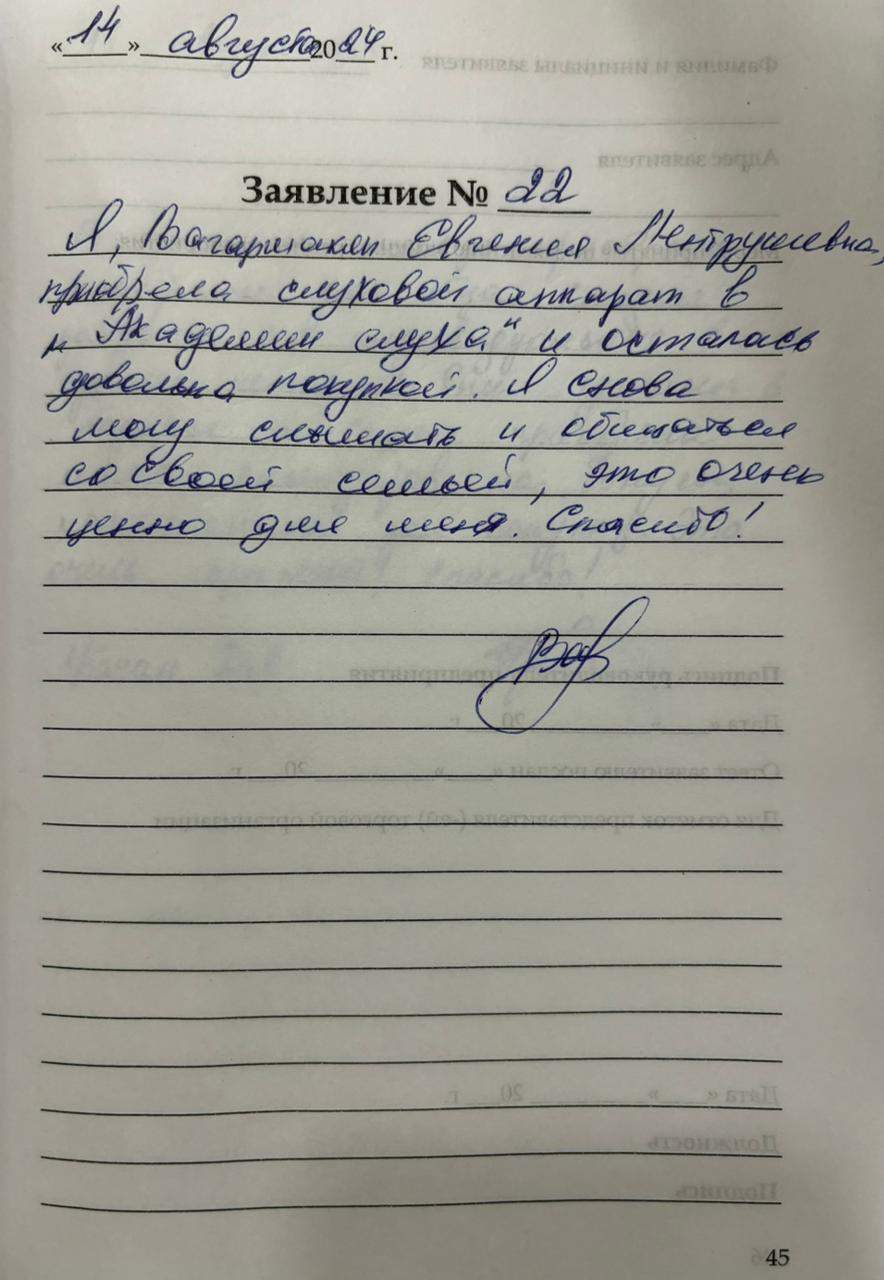 «14» августа 2024 г.
Заявление № 22
Я, Вагаршакян Евгения Ментрушевна,
приобрела слуховой аппарат в
„Академии слуха" и осталась
довольна покупкой. Я снова
могу слышать и общаться
со своей семьей, это очень
ценно для меня. Спасибо!
45